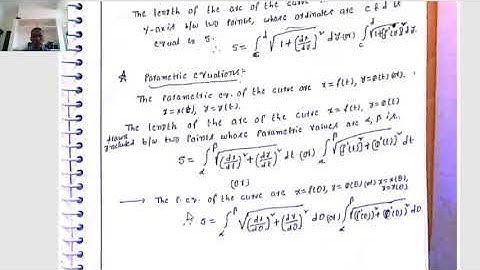 The length of the arc of the curve
y-axis b/w two points, whose ordinates are c & d is
equal to S.
∴ S = ∫_c^d √(1+(dx/dy)²) dy (or) ∫_c^d √(1+(f'(y))²) dy.
A Parametric equations:-
The parametric eq. of the curve are x=f(t), y=φ(t) (or)
x=x(t), y=y(t).
The length of the arc of the curve x=f(t), y=φ(t)
included b/w two points whose parametric values are α, β is.
S = ∫_α^β √((dx/dt)²+(dy/dt)²) dt (or) ∫_α^β √((f'(t))²+(φ'(t))²) dt
(or)
→ The p.eq. of the curve are x=f(θ), y=φ(θ) (or) x=x(θ), y=y(θ)
∴ S = ∫_α^β √((dx/dθ)²+(dy/dθ)²) dθ (or) ∫_α^β √((f'(θ))²+(φ'(θ))²) dθ